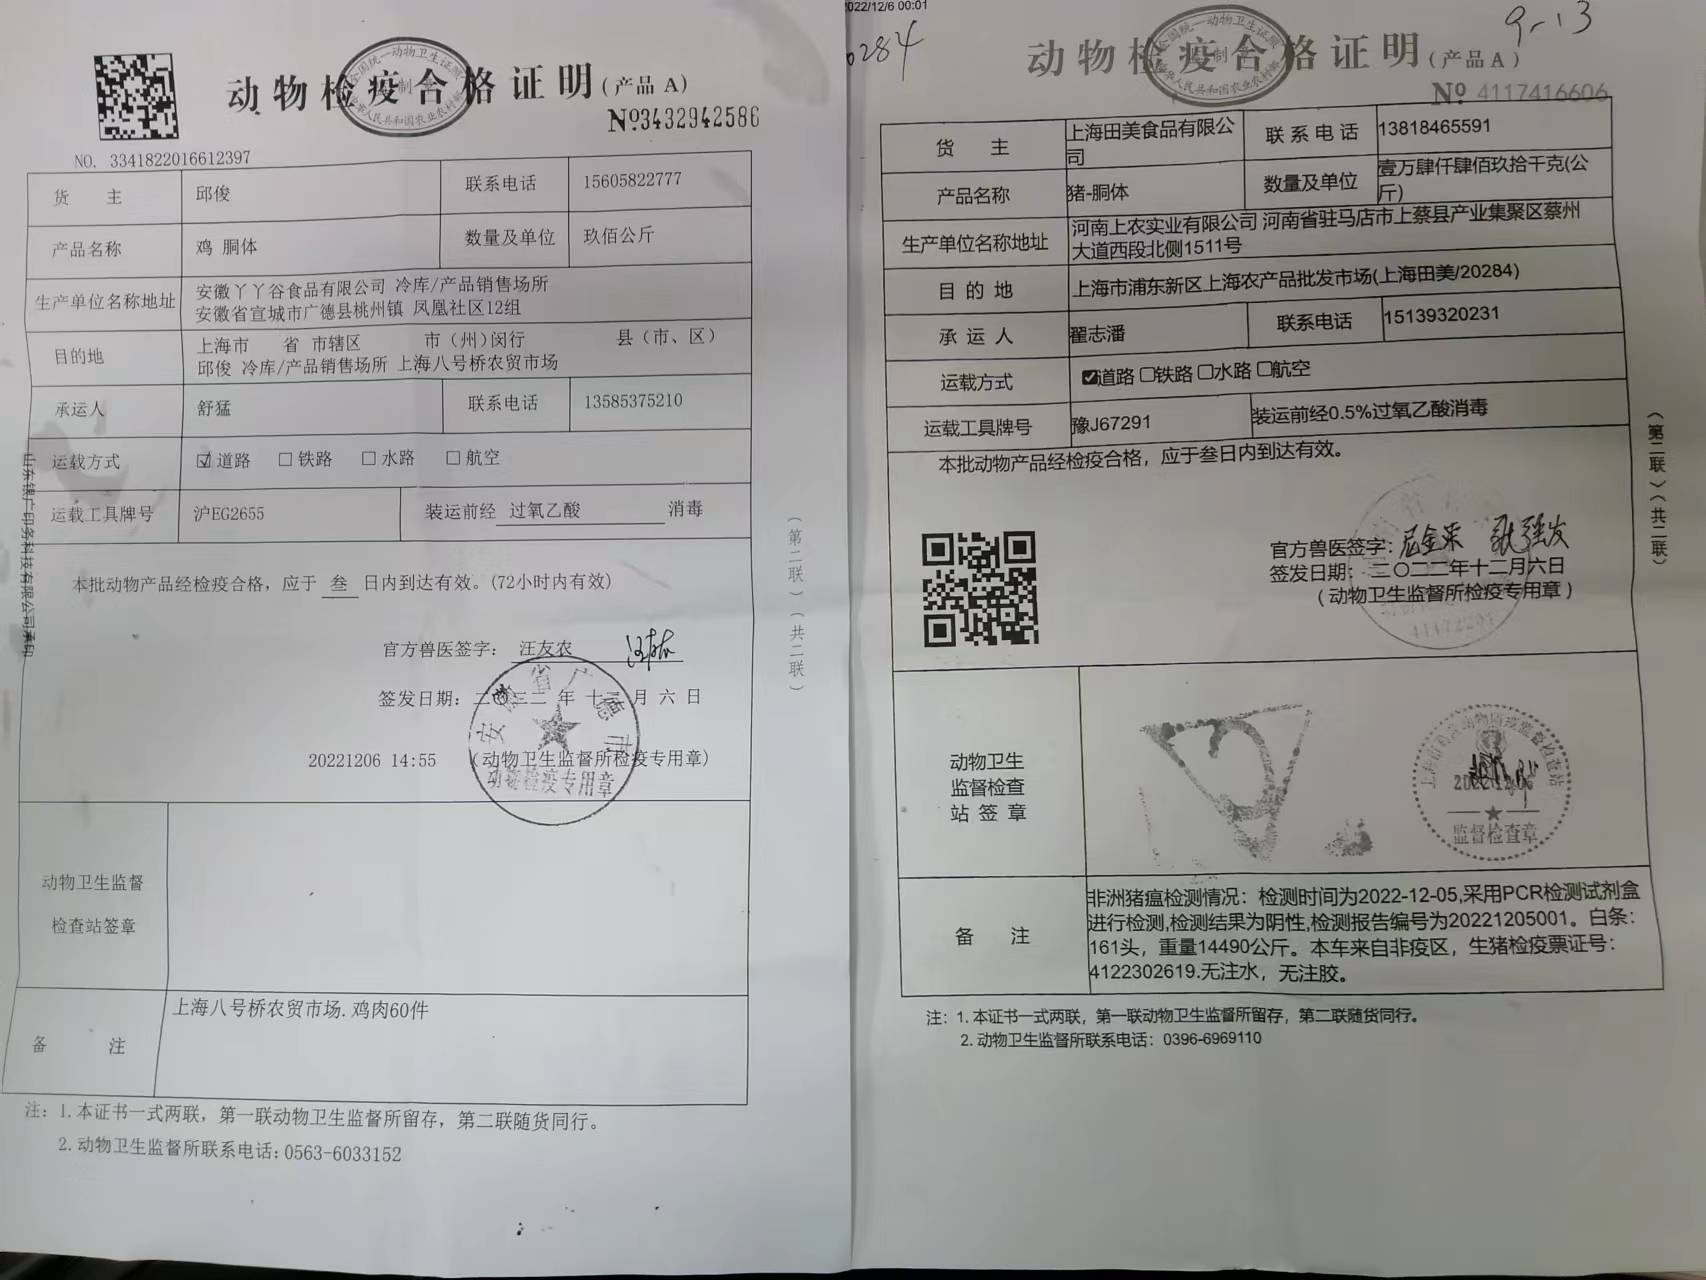 动物检疫合格证明(产品 A)
№3432942586
NO. 3341822016612397
货 主 邱俊 联系电话 15605822777
产品名称 鸡 胴体 数量及单位 玖佰公斤
生产单位名称地址 安徽丫丫谷食品有限公司 冷库/产品销售场所
安徽省宣城市广德县桃州镇 凤凰社区12组
目的地 上海市 省 市辖区 市(州)闵行 县(市、区)
邱俊 冷库/产品销售场所 上海八号桥农贸市场
承运人 舒猛 联系电话 13585375210
运载方式 ☑道路 □铁路 □水路 □航空
运载工具牌号 沪EG2655 装运前经 过氧乙酸 消毒
本批动物产品经检疫合格，应于 叁 日内到达有效。(72小时内有效)
官方兽医签字： 汪友农
签发日期： 年 月 六 日
20221206 14:55 (动物卫生监督所检疫专用章)
安徽省广德市
动物检疫专用章
动物卫生监督
检查站签章
备 注 上海八号桥农贸市场.鸡肉60件
注：1.本证书一式两联，第一联动物卫生监督所留存，第二联随货同行。
2.动物卫生监督所联系电话:0563-6033152
山东银广印务科技有限公司承印
(第二联)(共二联)
2022/12/6 00:01
0284
9-13
动物检疫合格证明(产品A)
№ 4117416606
货 主 上海田美食品有限公司 联系电话 13818465591
产品名称 猪-胴体 数量及单位 壹万肆仟肆佰玖拾千克(公斤)
生产单位名称地址 河南上农实业有限公司 河南省驻马店市上蔡县产业集聚区蔡州
大道西段北侧1511号
目的地 上海市浦东新区上海农产品批发市场(上海田美/20284)
承运人 翟志潘 联系电话 15139320231
运载方式 ☑道路 □铁路 □水路 □航空
运载工具牌号 豫J67291 装运前经0.5%过氧乙酸消毒
本批动物产品经检疫合格，应于叁日内到达有效。
官方兽医签字：
签发日期： 二〇二二年十二月六日
(动物卫生监督所检疫专用章)
动物卫生
监督检查
站签章
监督检查章
非洲猪瘟检测情况：检测时间为2022-12-05,采用PCR检测试剂盒
进行检测,检测结果为阴性,检测报告编号为20221205001。白条：
备 注 161头，重量14490公斤。本车来自非疫区，生猪检疫票证号：
4122302619.无注水，无注胶。
注：1.本证书一式两联，第一联动物卫生监督所留存，第二联随货同行。
2.动物卫生监督所联系电话：0396-6969110
(第二联)(共二联)